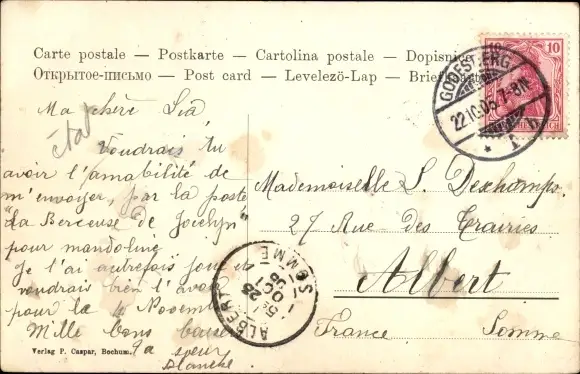 Carte postale — Postkarte — Cartolina postale — Dopisnice
Открытое-письмо — Post card — Levelező-Lap — Briefkaart
GODESBERG
22.10.05.7-8N.
10
10
Ma chère Lia
Voudrais tu
avoir l'amabilité de
m'envoyer, par la poste
"La Berceuse de Jocelyn"
pour mandoline
Je l'ai autrefois joué et
voudrais bien l'avoir
pour la 4 Novembre
Mille bons baisers
Ta sœur
Blanche
Mademoiselle L. Deschamps.
27 Rue des Prairies
Albert
France Somme
ALBERT
SOMME
25
OCT
05
Verlag P. Caspar, Bochum.